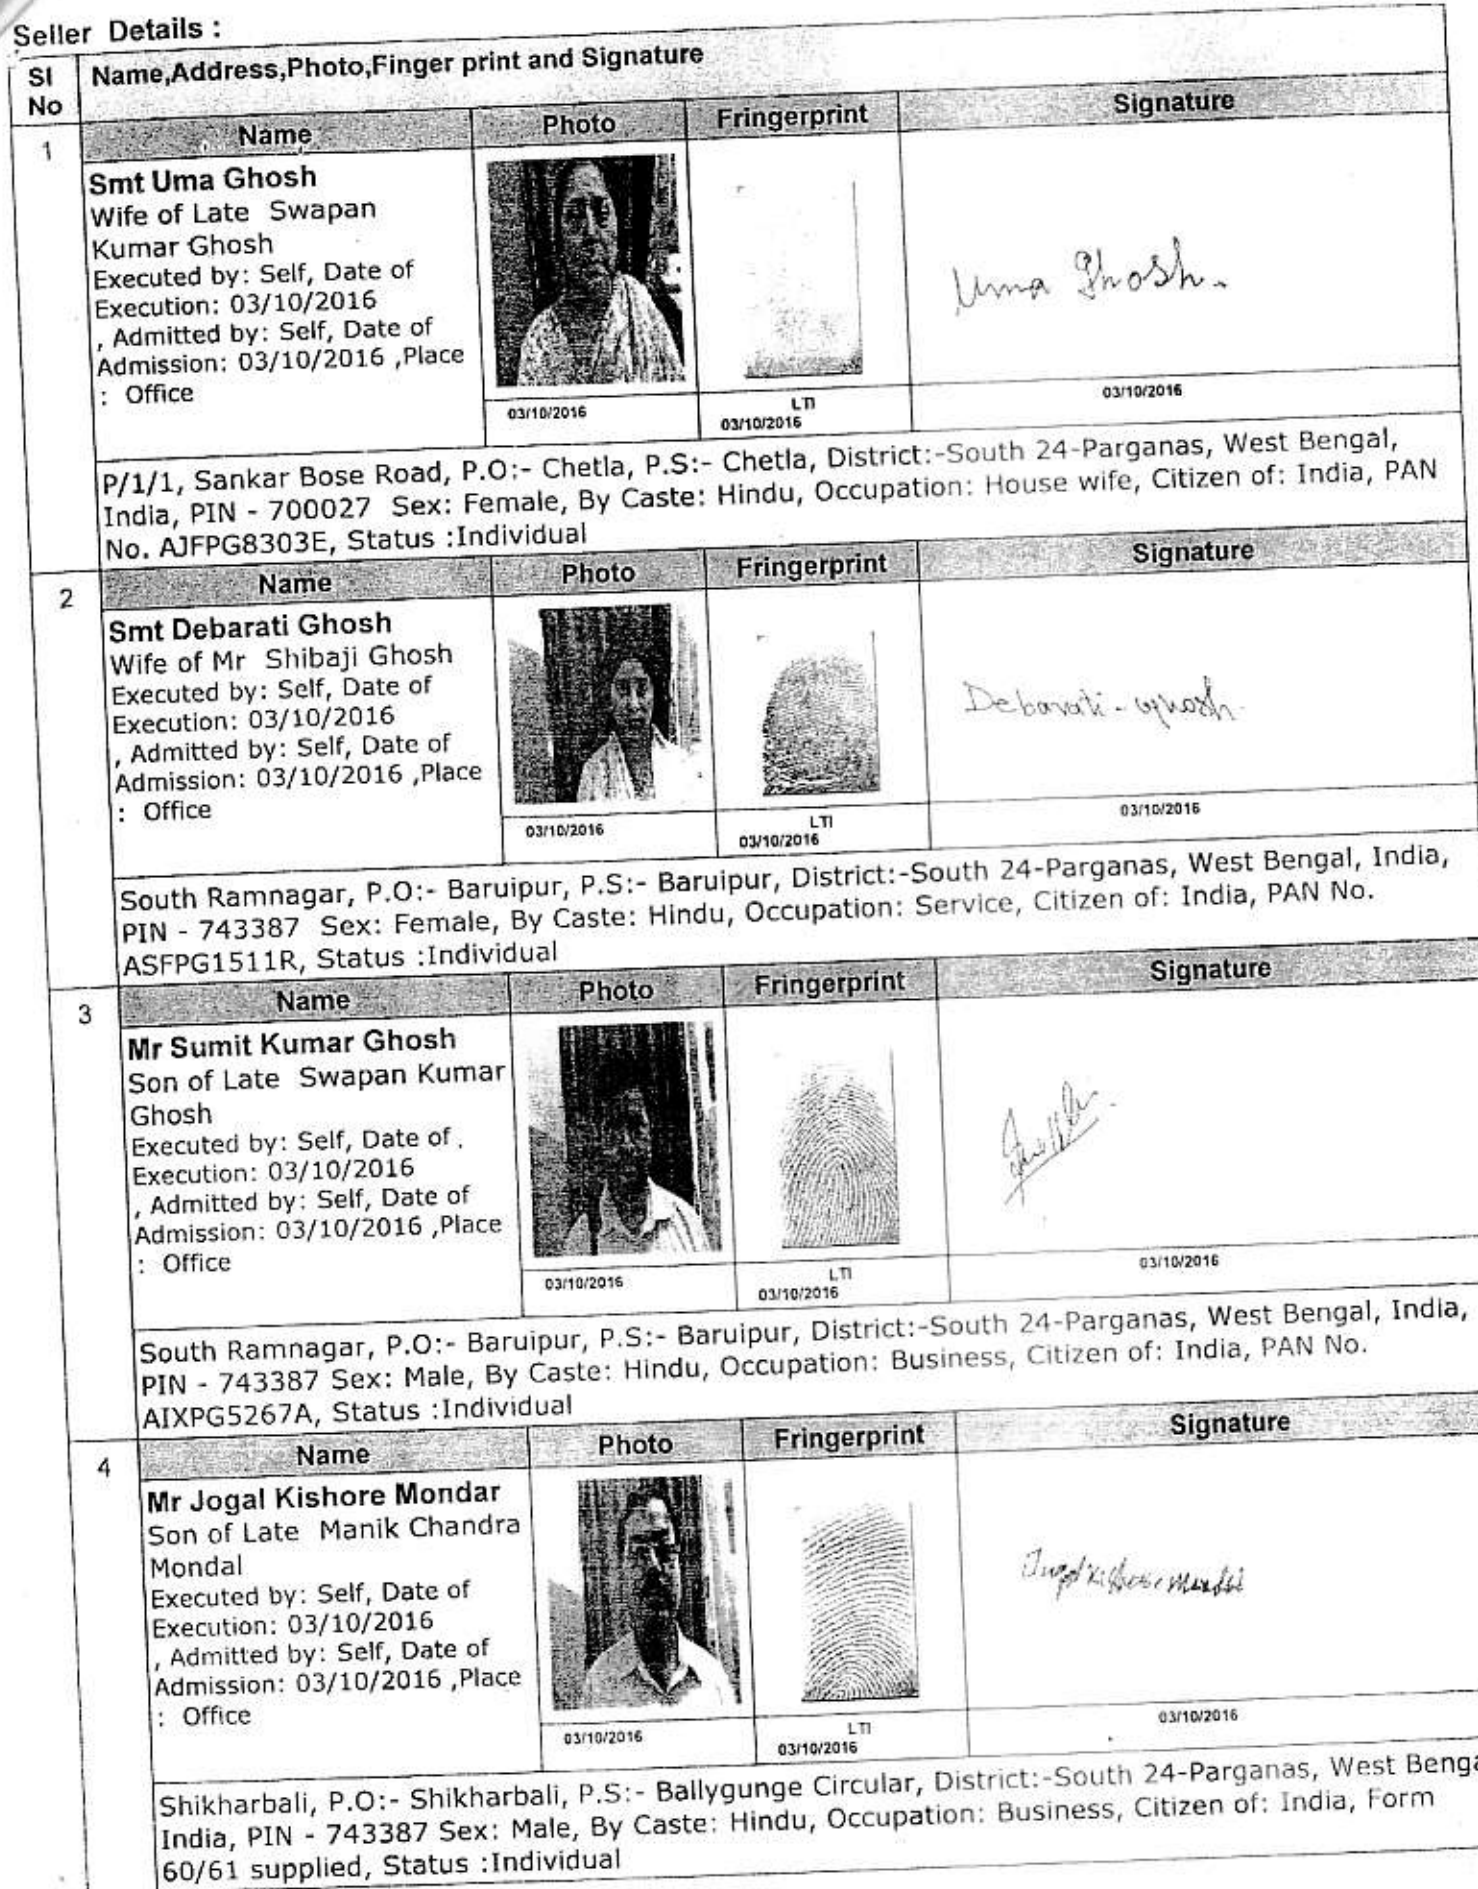 Seller Details :
Sl No
Name,Address,Photo,Finger print and Signature
1
Name
Photo
Fringerprint
Signature
Smt Uma Ghosh
Wife of Late Swapan
Kumar Ghosh
Executed by: Self, Date of
Execution: 03/10/2016
, Admitted by: Self, Date of
Admission: 03/10/2016 ,Place
: Office
Uma Ghosh.
03/10/2016
LTI
03/10/2016
03/10/2016
P/1/1, Sankar Bose Road, P.O:- Chetla, P.S:- Chetla, District:-South 24-Parganas, West Bengal,
India, PIN - 700027 Sex: Female, By Caste: Hindu, Occupation: House wife, Citizen of: India, PAN
No. AJFPG8303E, Status :Individual
2
Name
Photo
Fringerprint
Signature
Smt Debarati Ghosh
Wife of Mr Shibaji Ghosh
Executed by: Self, Date of
Execution: 03/10/2016
, Admitted by: Self, Date of
Admission: 03/10/2016 ,Place
: Office
Debarati - Ghosh.
03/10/2016
LTI
03/10/2016
03/10/2016
South Ramnagar, P.O:- Baruipur, P.S:- Baruipur, District:-South 24-Parganas, West Bengal, India,
PIN - 743387 Sex: Female, By Caste: Hindu, Occupation: Service, Citizen of: India, PAN No.
ASFPG1511R, Status :Individual
3
Name
Photo
Fringerprint
Signature
Mr Sumit Kumar Ghosh
Son of Late Swapan Kumar
Ghosh
Executed by: Self, Date of
Execution: 03/10/2016
, Admitted by: Self, Date of
Admission: 03/10/2016 ,Place
: Office
03/10/2016
LTI
03/10/2016
03/10/2016
South Ramnagar, P.O:- Baruipur, P.S:- Baruipur, District:-South 24-Parganas, West Bengal, India,
PIN - 743387 Sex: Male, By Caste: Hindu, Occupation: Business, Citizen of: India, PAN No.
AIXPG5267A, Status :Individual
4
Name
Photo
Fringerprint
Signature
Mr Jogal Kishore Mondar
Son of Late Manik Chandra
Mondal
Executed by: Self, Date of
Execution: 03/10/2016
, Admitted by: Self, Date of
Admission: 03/10/2016 ,Place
: Office
Jugal Kishore Mondal
03/10/2016
LTI
03/10/2016
03/10/2016
Shikharbali, P.O:- Shikharbali, P.S:- Ballygunge Circular, District:-South 24-Parganas, West Benga
India, PIN - 743387 Sex: Male, By Caste: Hindu, Occupation: Business, Citizen of: India, Form
60/61 supplied, Status :Individual